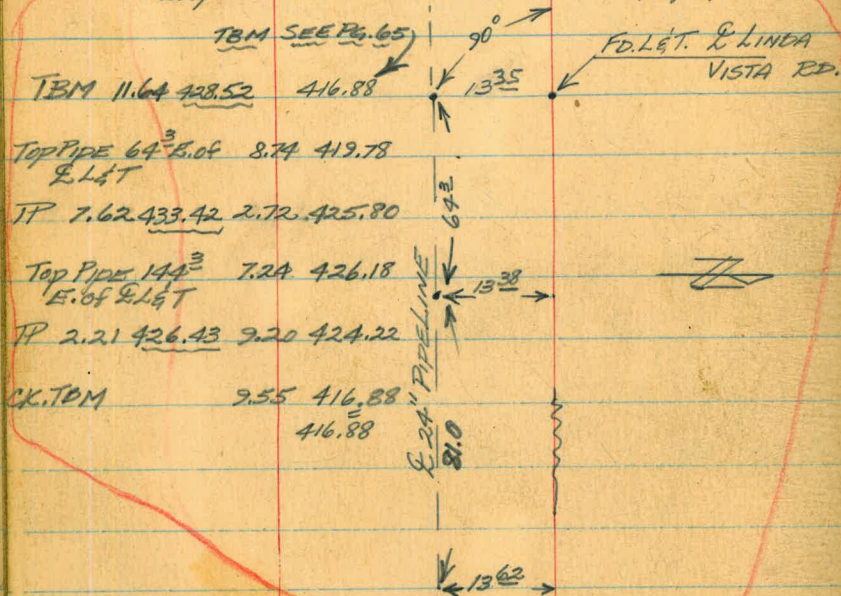 TBM SEE PG. 65
TBM 11.64 428.52 416.88
Top Pipe 64³ E. of 8.74 419.78
℄ L&T
TP 7.62 433.42 2.72 425.80
Top Pipe 144³ 7.24 426.18
E. of ℄ L&T
TP 2.21 426.43 9.20 424.22
CK. TBM 9.55 416.88
416.88
90°
FD. L&T. ℄ LINDA
VISTA RD.
13³⁵
64³
13³⁸
℄ 24" PIPELINE
81.0
13⁶²